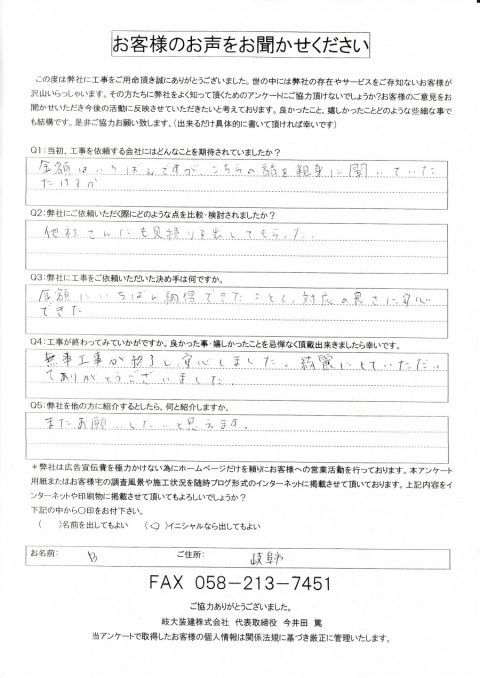 お客様のお声をお聞かせください
この度は弊社に工事をご用命頂き誠にありがとうございました。世の中には弊社の存在やサービスをご存知ないお客様が
沢山いらっしゃいます。その方たちに弊社をよく知って頂くためのアンケートにご協力頂けないでしょうか?お客様のご意見をお
聞かせいただき今後の活動に反映させていただきたいと考えております。良かったこと、嬉しかったことどのような些細な事で
も結構です。是非ご協力お願い致します。(出来るだけ具体的に書いて頂ければ幸いです)
Q1:当初、工事を依頼する会社にはどんなことを期待されていましたか?
金額はいちばんですが、こちらの話を親身に聞いていた
だけるか
Q2:弊社にご依頼いただく際にどのような点を比較・検討されましたか?
他社さんにも見積りを出してもらった。
Q3:弊社に工事をご依頼いただいた決め手は何ですか。
金額にいちばん納得できたことと、対応の良さに安心
できた
Q4:工事が終わってみていかがですか。良かった事・嬉しかったことを忌憚なく頂戴出来ましたら幸いです。
無事工事が終了し、安心しました。綺麗にしていただい
てありがとうございました
Q5:弊社を他の方に紹介するとしたら、何と紹介しますか。
またお願いしたいと思えます。
*弊社は広告宣伝費を極力かけない為にホームページだけを頼りにお客様への営業活動を行っております。本アンケート
用紙またはお客様宅の調査風景や施工状況を随時ブログ形式のインターネットに掲載させて頂いております。上記内容をイ
ンターネットや印刷物に掲載させて頂いてもよろしいでしょうか?
下記の中から〇印をお付下さい。
( )名前を出してもよい (○)イニシャルなら出してもよい
お名前: B ご住所: 岐阜市
FAX 058-213-7451
ご協力ありがとうございました。
岐大装建株式会社 代表取締役 今井田 篤
当アンケートで取得したお客様の個人情報は関係法規に基づき厳正に管理いたします。